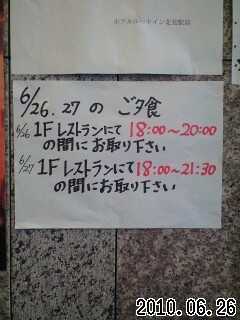 ホテルルートイン北見駅前
6/26.27 の ご夕食
6/26 1F レストランにて 18:00~20:00
の間にお取り下さい
6/27 1F レストランにて 18:00~21:30
の間にお取り下さい
2010.06.26